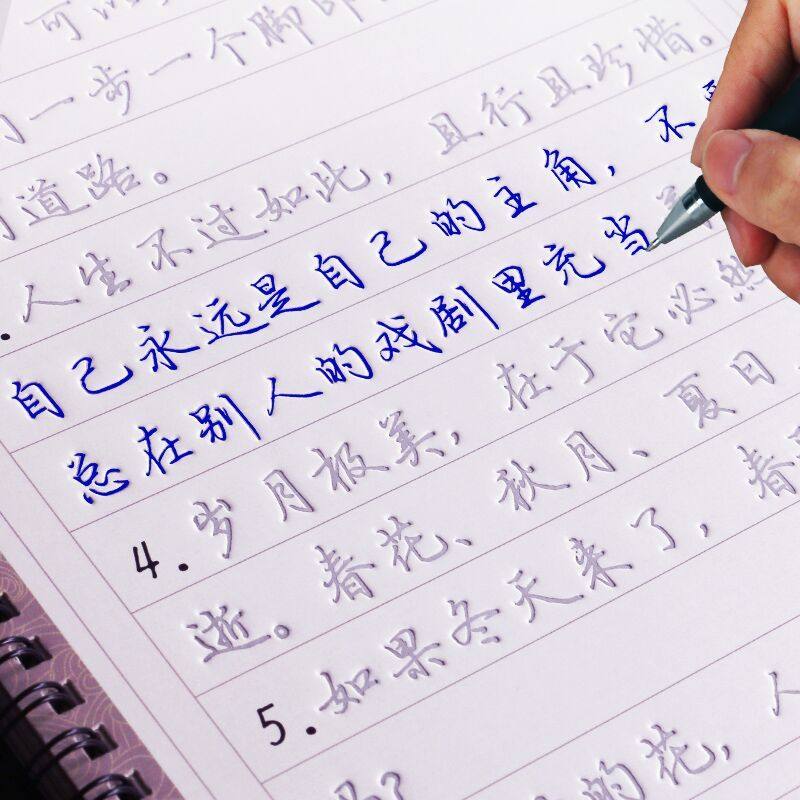 可以
一步一个脚印
道路。
人生不过如此，且行且珍惜。
自己永远是自己的主角，不
总在别人的戏剧里充当
4.岁月极美，在于它必然
逝。春花、秋月、夏日、
5.如果冬天来了，春
的花，人